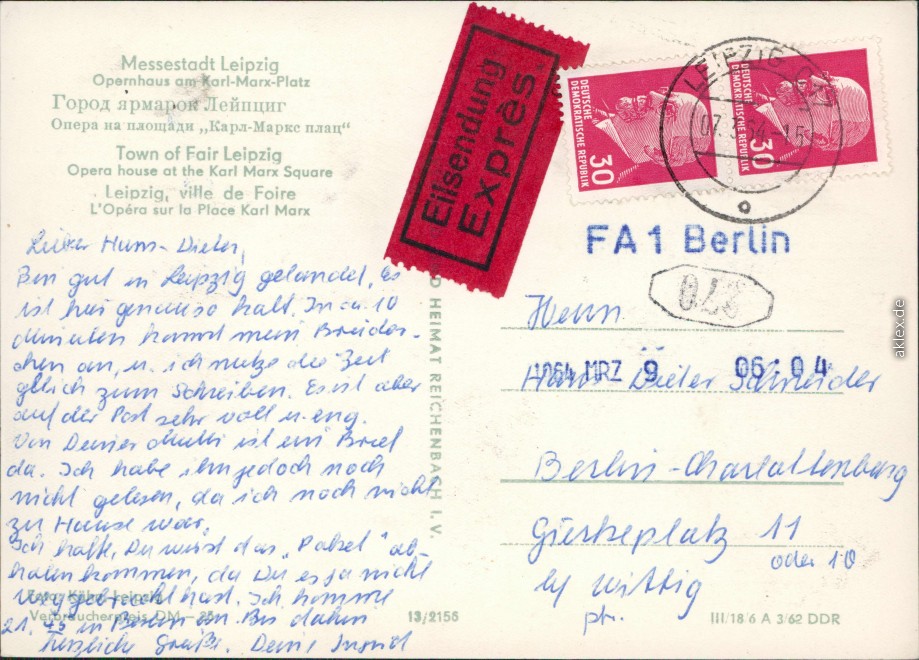 Messestadt Leipzig
Opernhaus am Karl-Marx-Platz
Город ярмарок Лейпциг
Опера на площади „Карл-Маркс плац“
Town of Fair Leipzig
Opera house at the Karl Marx Square
Leipzig, ville de Foire
L'Opéra sur la Place Karl Marx
Lieber Hans-Dieter,
Bin gut in Leipzig gelandet, es
ist hier genauso kalt. In ca. 10
Minuten kommt mein Brüder-
chen an, u. ich nutze die Zeit
gleich zum Schreiben. Es ist aber
auf der Post sehr voll u. eng.
Von Deiner Mutti ist ein Brief
da. Ich habe ihn jedoch noch
nicht gelesen, da ich noch nicht
zu Hause war.
Ich hoffe, Du wirst das „Paket“ ab-
holen kommen, da Du es ja nicht
weggebracht hast. Ich komme
21. in Berlin an. Bis dahin
herzliche Grüße. Deine Ingrid
Verbraucherpreis DM -,25
13/2156
D HEIMAT REICHENBACH I. V.
Eilsendung
Exprès
DEUTSCHE
DEMOKRATISCHE
REPUBLIK
30
DEUTSCHE
DEMOKRATISCHE
REPUBLIK
30
LEIPZIG
07.3.64-15
FA 1 Berlin
Herrn
1964 MRZ 9 06:04
Hans Dieter Schneider
Berlin-Charlottenburg
Gierkeplatz 11
oder 10
b/ Wittig
ptr.
III/18/6 A 3/62 DDR
aklex.de